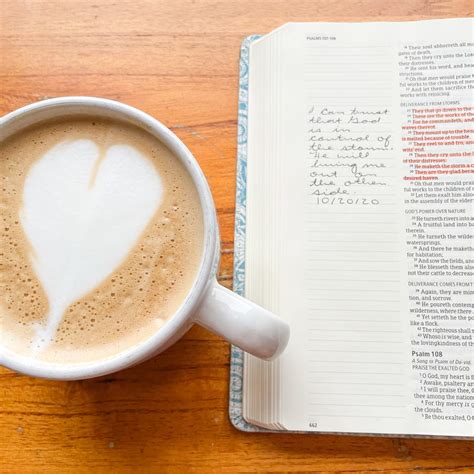 PSALMS 107-108
I can trust
that God
is in
control of
the storm.
He will
bring me
out on
the other
side.
10/20/20
662
Their soul abhorreth all m
gates of death.
Then they cry unto the L
their distresses.
He sent his word, and
Oh that men would praise
ful works to the children of men
And let them sacrifice the sac
works with rejoicing.
DELIVERANCE FROM STORMS
They that go down to the
These are the works of the
For he commandeth, and
waves thereof.
They mount up to the heav
is melted because of trouble.
They reel to and fro, and
wits' end.
Then they cry unto the L
their distresses.
He maketh the storm a
Then are they glad because
desired haven.
Oh that men would praise
ful works to the children of men
Let them exalt him also
in the assembly of the elders
GOD'S POWER OVER NATURE
He turneth rivers into a w
A fruitful land into barren
therein.
He turneth the wilderness
watersprings.
And there he maketh the h
for habitation;
And sow the fields, and
He blesseth them also
not their cattle to decrease.
DELIVERANCE COMES FROM
Again, they are minished
tion, and sorrow.
He poureth contempt
wilderness, where there is
Yet setteth he the poor
like a flock.
The righteous shall
mouth.
Whoso is wise, and
the lovingkindness of the
Psalm 108
A Song or Psalm of Da-vid.
PRAISE THE EXALTED GOD
O God, my heart is f
Awake, psaltery and
I will praise thee, O
For thy mercy is gre
the clouds.
Be thou exalted, O